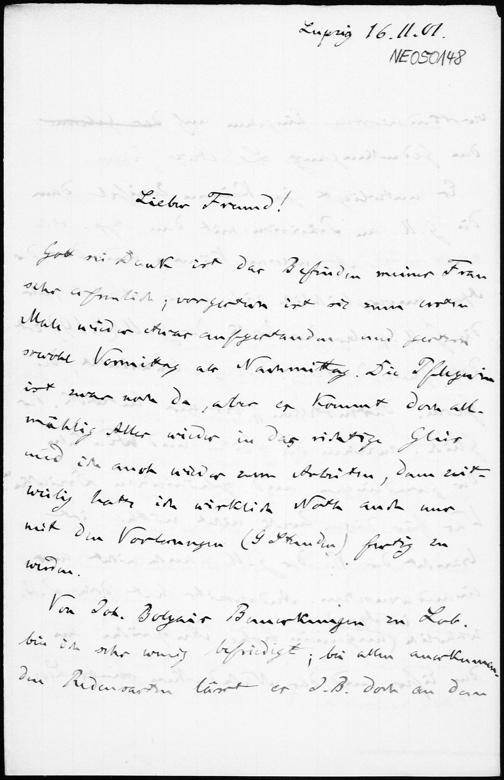 Leipzig 16.11.01.
NE050148
Lieber Freund!
Gott sei Dank ist das Befinden meiner Frau
sehr erfreulich; vorgestern ist sie zum ersten
Male wieder etwas aufgestanden und gestern
sowohl Vormittag als Nachmittag. Die Pflegerin
ist zwar noch da, aber es kommt doch all-
mählig Alles wieder in das richtige Gleis
und ich auch wieder zum Arbeiten, denn zeit-
weilig hatte ich wirklich Noth auch nur
mit den Vorlesungen (9 Stunden) fertig zu
werden.
Von Joh. Bolyais Bemerkungen zu Lob.
bin ich sehr wenig befriedigt; bei allen anerkennen-
den Redensarten lässt er z.B. doch an dem